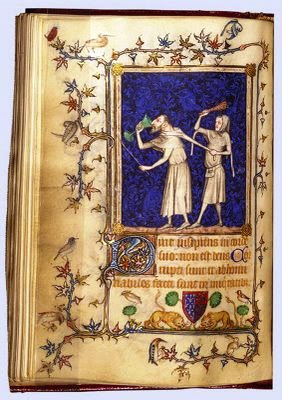 Dixit insipiens in corde
suo non est deus Cor
rupti sunt et abhomi
nabiles facti sunt in